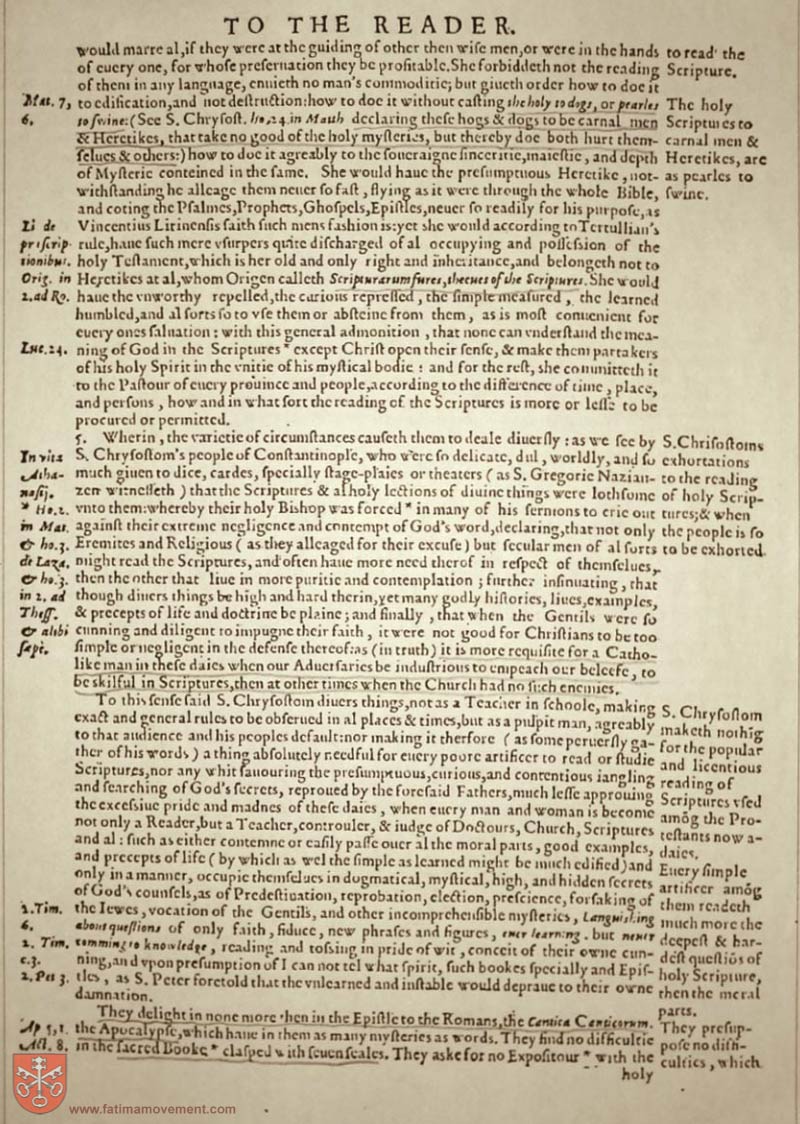 TO THE READER.
would marre al, if they were at the guiding of other then wiſe men, or were in the hands
of euery one, for whoſe preſeruation they be profitable. She forbiddeth not the reading
of them in any language, enuieth no man's commoditie; but giueth order how to doe it
to edification, and not deſtruction: how to doe it without caſting the holy to dogs, or pearles
to ſwine: (See S. Chryſoſt. ho. 24. in Matth declaring theſe hogs & dogs to be carnal men
& Heretikes, that take no good of the holy myſteries, but thereby doe both hurt them-
ſelues & others:) how to doe it agreably to the ſoueraigne ſinceritie, maieſtie, and depth
of Myſterie conteined in the ſame. She would haue the preſumptuous Heretike, not-
withſtanding he alleage them neuer ſo faſt, flying as it were through the whole Bible,
and coting the Pſalmes, Prophets, Ghoſpels, Epiſtles, neuer ſo readily for his purpoſe, as
Vincentius Lirinenſis ſaith ſuch mens faſhion is: yet she would according to Tertullian's
rule, haue ſuch mere vſurpers quite diſcharged of al occupying and poſſeſsion of the
holy Teſtament, which is her old and only right and inheritance, and belongeth not to
Heretikes at al, whom Origen calleth Scripturarum fures, theeues of the Scriptures. She would
haue the vnworthy repelled, the curious repreſſed, the ſimple meaſured, the learned
humbled, and al ſorts ſo to vſe them or abſteine from them, as is moſt conuenient for
euery ones ſaluation: with this general admonition, that none can vnderſtand the mea-
ning of God in the Scriptures * except Chriſt open their ſenſe, & make them partakers
of his holy Spirit in the vnitie of his myſtical bodie: and for the reſt, she committeth it
to the Paſtour of euery prouince and people, according to the difference of time, place,
and perſons, how and in what ſort the reading of the Scriptures is more or leſſe to be
procured or permitted.
5. Wherin, the varietie of circumſtances cauſeth them to deale diuerſly: as we ſee by
S. Chryſoſtom's people of Conſtantinople, who were ſo delicate, dul, worldly, and ſo
much giuen to dice, cardes, ſpecially ſtage-plaies or theaters (as S. Gregorie Nazian-
zen witneſſeth) that the Scriptures & al holy lections of diuine things were lothſome
vnto them: whereby their holy Bishop was forced * in many of his ſermons to crie out
againſt their extreme negligence and contempt of God's word, declaring, that not only
Eremites and Religious (as they alleaged for their excuſe) but ſecular men of al ſorts
might read the Scriptures, and often haue more need therof in reſpect of themſelues,
then the other that liue in more puritie and contemplation; further inſinuating, that
though diuers things be high and hard therin, yet many godly hiſtories, liues, examples,
& precepts of life and doctrine be plaine; and finally, that when the Gentils were ſo
cunning and diligent to impugne their faith, it were not good for Chriſtians to be too
ſimple or negligent in the defenſe thereof: as (in truth) it is more requiſite for a Catho-
like man in theſe daies when our Aduerſaries be induſtrious to empeach our beleefe, to
be skilful in Scriptures, then at other times when the Church had no ſuch enemies.
To this ſenſe ſaid S. Chryſoſtom diuers things, not as a Teacher in ſchoole, making
exact and general rules to be obſerued in al places & times, but as a pulpit man, agreably
to that audience and his peoples default: nor making it therfore (as ſome peruerſly ga-
ther of his words) a thing abſolutely needful for euery poore artificer to read or ſtudie
Scriptures, nor any whit fauouring the preſumptuous, curious, and contentious iangling
and ſearching of God's ſecrets, reproued by the foreſaid Fathers, much leſſe approuing
the exceſsiue pride and madnes of theſe daies, when euery man and woman is become
not only a Reader, but a Teacher, controuler, & iudge of Doctours, Church, Scriptures
and al: ſuch as either contemne or eaſily paſſe ouer al the moral parts, good examples,
and precepts of life (by which as wel the ſimple as learned might be much edified) and
only in a manner, occupie themſelues in dogmatical, myſtical, high, and hidden ſecrets
of God's counſels, as of Predeſtination, reprobation, election, preſcience, forſaking of
the Iewes, vocation of the Gentils, and other incomprehenſible myſteries, Languishing
about queſtions of only faith, fiduce, new phraſes and figures, euer learning, but neuer
comming to knowledge, reading and toſsing in pride of wit, conceit of their owne cun-
ning, and vpon preſumption of I can not tel what ſpirit, ſuch bookes ſpecially and Epiſ-
tles, as S. Peter foretold that the vnlearned and inſtable would depraue to their owne
damnation.
They delight in none more then in the Epiſtle to the Romans, the Cantica Canticorum.
the Apocalypſe, which haue in them as many myſteries as words. They find no difficultie
in the ſacred Booke * claſped with ſeuen ſeales. They aske for no Expoſitour * with the
holy
Mat. 7,
6.
Li de
preſcrip-
tionibus.
Orig. in
2. ad Ro.
Luc. 24.
In vita
Atha-
naſij.
* Ho. 2.
in Mat.
& ho. 3.
de Laza,
& ho. 3.
in 2. ad
Theſſ.
& alibi
ſæpe.
1. Tim.
6.
2. Tim.
c. 3.
2. Pet 3.
Ap 5, 1.
Act. 8.
to read the
Scripture.
The holy
Scriptures to
carnal men &
Heretikes, are
as pearles to
ſwine.
S. Chriſoſtoms
exhortations
to the reading
of holy Scrip-
tures; & when
the people is ſo
to be exhorted.
S. Chryſoſtom
maketh nothĩg
for the popular
and licentious
reading of
Scriptures vſed
amõg the Pro-
teſtants now a-
daies.
Euery ſimple
artificer amõg
them readeth
much more the
deepeſt & har-
deſt queſtiõs of
holy Scripture,
then the moral
parts.
They preſup-
poſe no diffi-
culties, which
www.fatimamovement.com